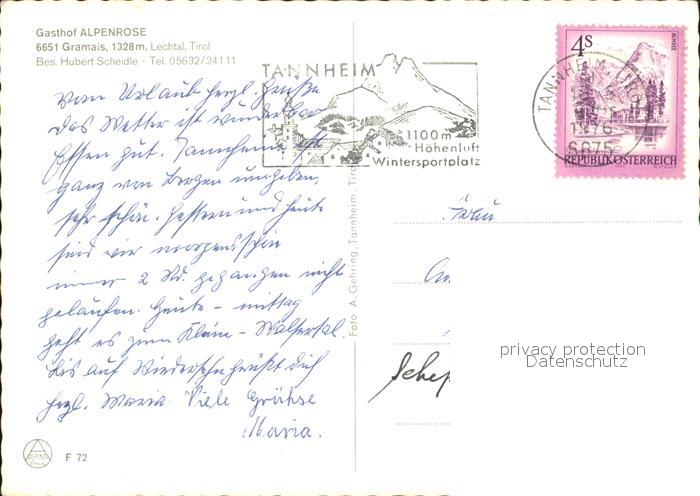 Gasthof ALPENROSE
6651 Gramais, 1328m, Lechtal, Tirol
Bes. Hubert Scheidle - Tel. 05632/24111
TANNHEIM
1100m
Höhenluft
Wintersportplatz
4S
ALMSEE
TANNHEIM, TIROL
1976
6675
REPUBLIK ÖSTERREICH
Vom Urlaub herzl. Grüße
das Wetter ist wunderbar
Essen gut. Tannheim ist
ganz von Bergen umgeben,
sehr schön. Gestern und heute
sind wir morgens schon
immer 2 Std. gegangen nicht
gelaufen. Heute - mittag
geht es zum Klein - Walsertal.
Bis auf Wiedersehn grüßt dich
herzl. Maria Viele Grüße
Maria.
Foto A. Gehring, Tannheim, Tirol
Frau
privacy protection
Datenschutz
F 72